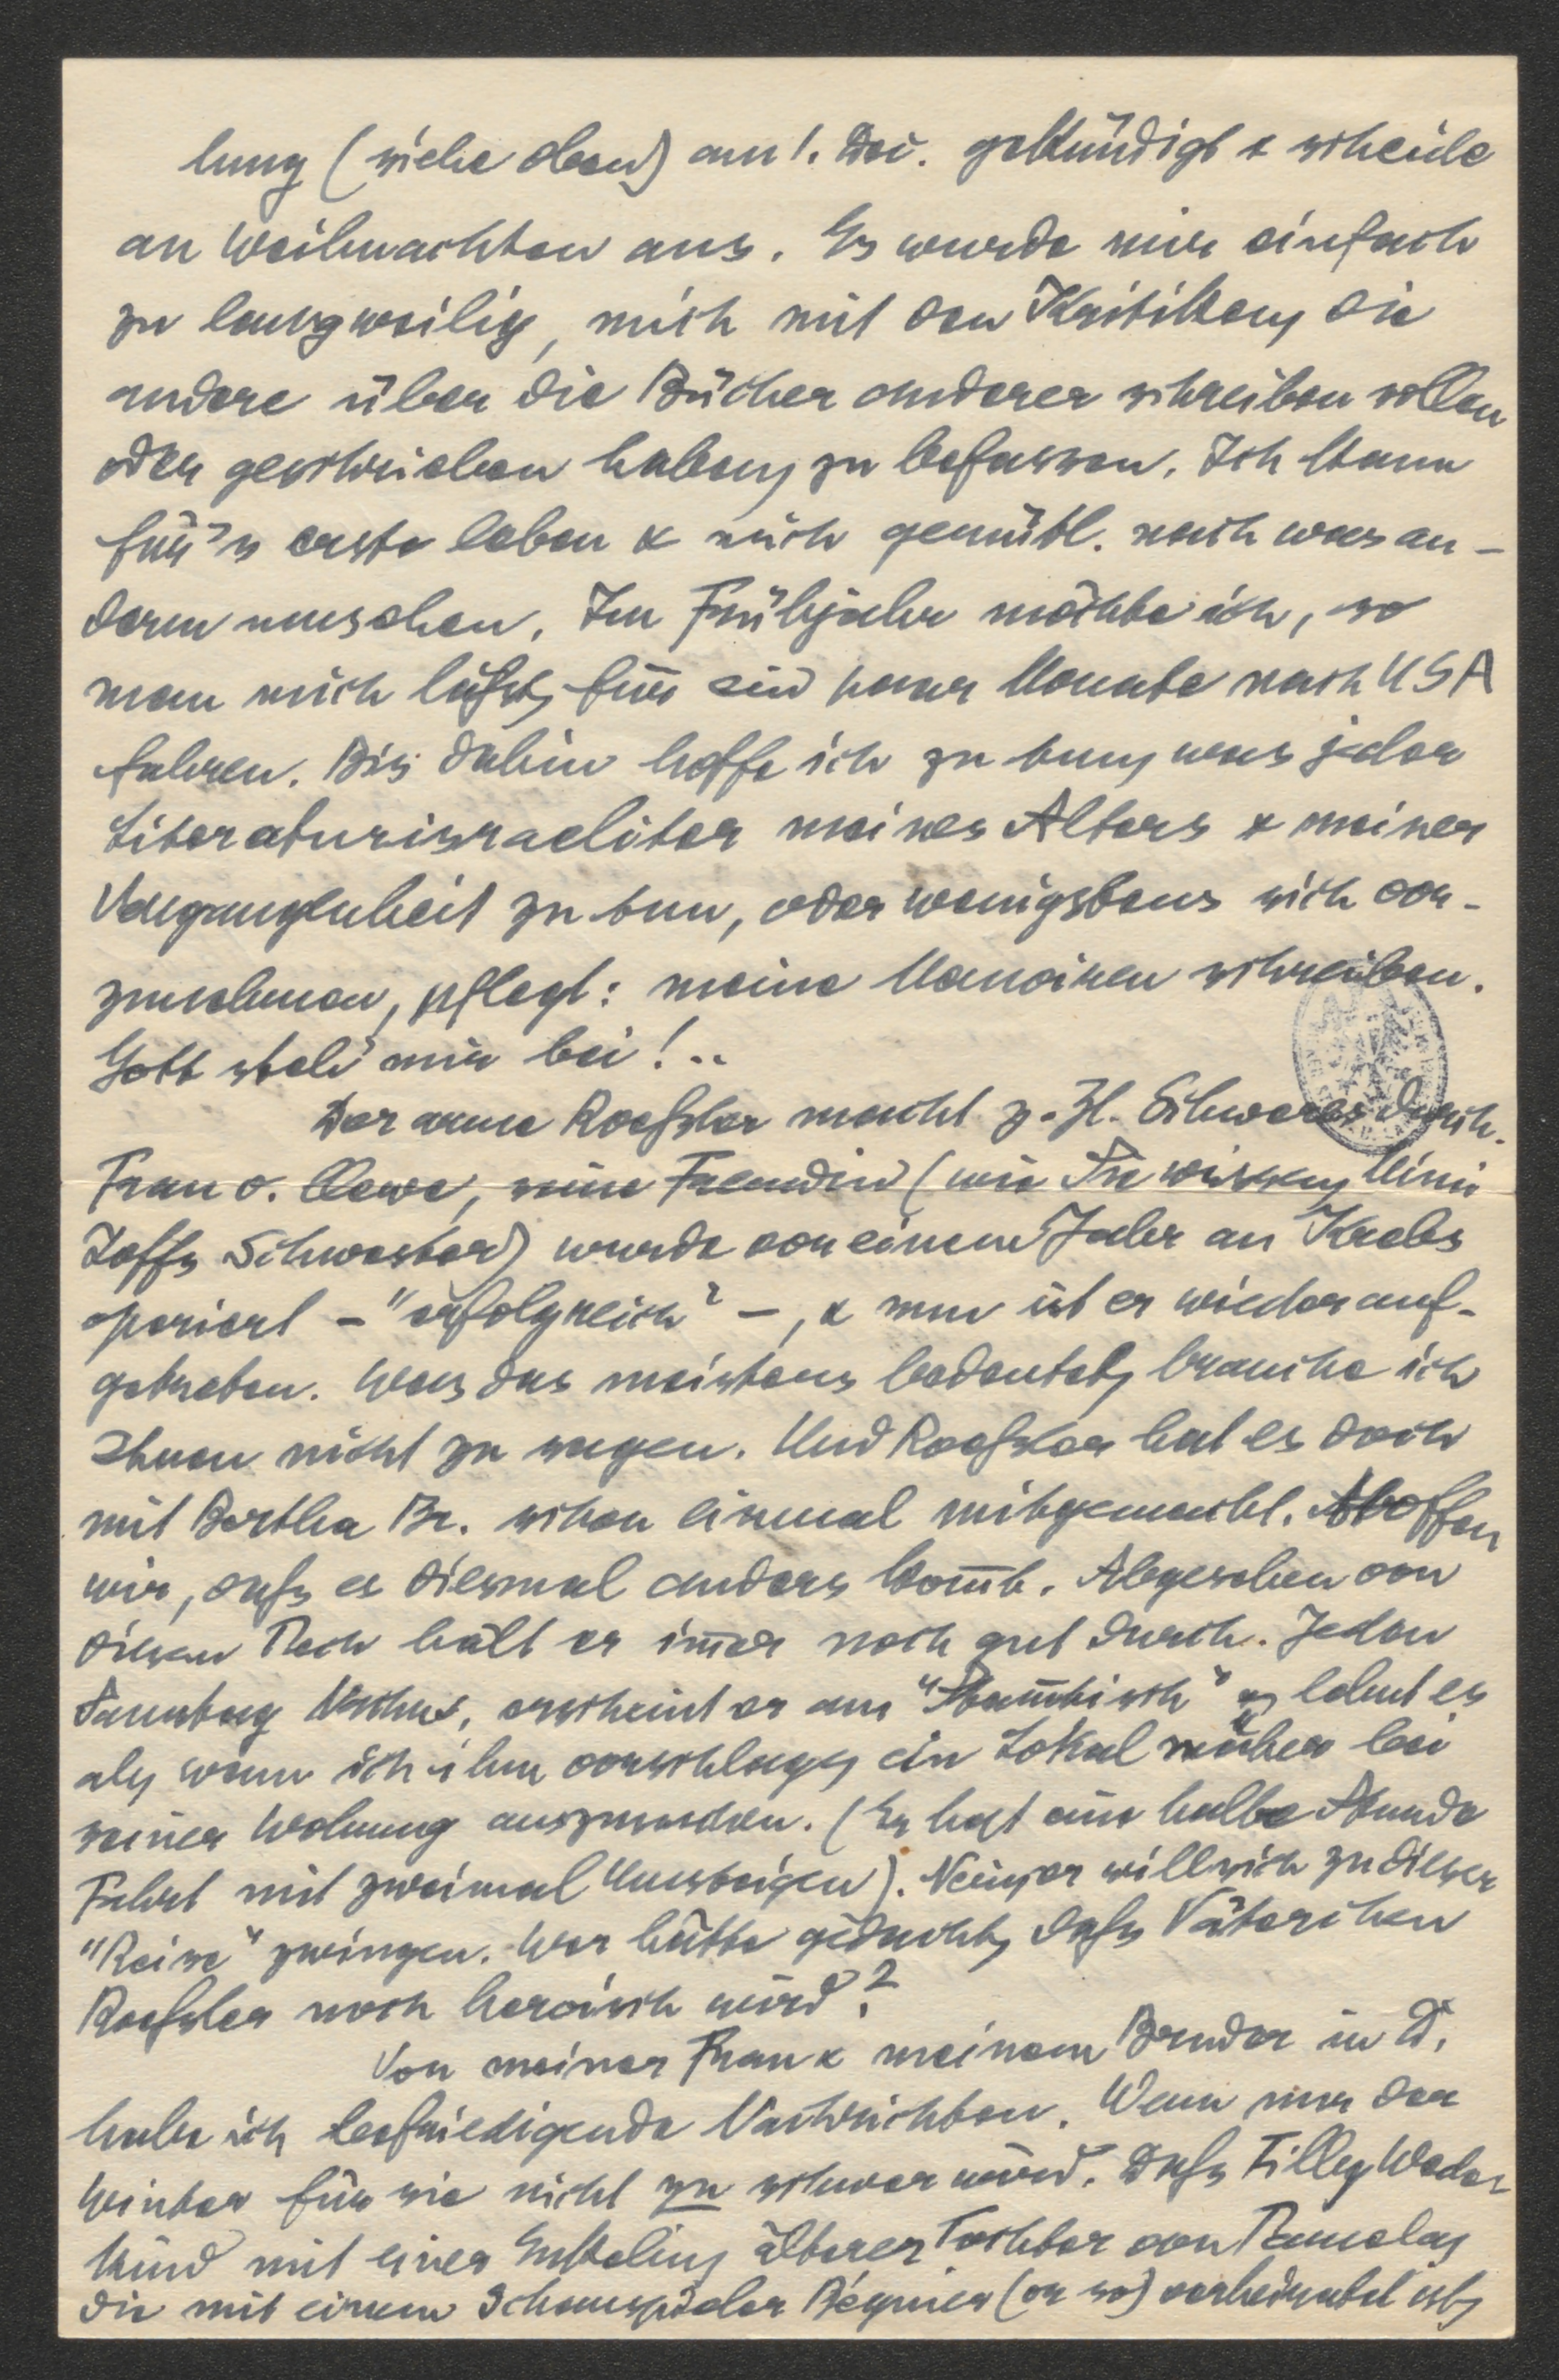 lung (siehe oben) am 1. Dez. gekündigt & scheide
an Weihnachten aus. Es wurde mir einfach
zu langweilig, mich mit den Kritiken, die
andere über die Bücher anderer schreiben wollen
oder geschrieben haben, zu befassen. Ich kann
für's erste leben & mich gemütl. nach was an-
derm umsehen. Im Frühjahr möchte ich, so
man mich läßt, für ein paar Monate nach USA
fahren. Bis dahin hoffe ich zu tun, was jeder
Literaturisraeliter meines Alters & meiner
Vergangenheit zu tun, oder wenigstens sich vor-
zunehmen, pflegt: meine Memoiren schreiben.
Gott steh' mir bei!..
Der arme Roeßler macht z. Zt. Schweres durch.
Frau v. Loewe, seine Freundin (wie Sie wissen, Mimi
Zoffs Schwester) wurde vor einem Jahr an Krebs
operiert – "erfolgreich" –, & nun ist er wieder auf-
getreten. Was das meistens bedeutet, brauche ich
Ihnen nicht zu sagen. Und Roeßler hat es doch
mit Bertha Br. schon einmal mitgemacht. Hoffen
wir, daß es diesmal anders kom̅t. Abgesehen von
diesem Pech hält er im̅er noch gut durch. Jeden
Samstag Nachm. erscheint er am "Stam̅tisch" & lehnt es
ab, wenn ich ihm vorschlage, ein Lokal näher bei
seiner Wohnung auszumachen. (Er hat eine halbe Stunde
Fahrt mit zweimal Umsteigen). Nein, er will sich zu dieser
"Reise" zwingen. Wer hätte gedacht, daß Väterchen
Roeßler noch heroisch wird?
Von meiner Frau & meinem Bruder in D.
habe ich befriedigende Nachrichten. Wenn nur der
Winter für sie nicht zu schwer wird. Daß Tilly Wede-
kind mit einer Enkelin, älterer Tochter von Pamela,
die mit einem Schauspieler Régnier (or so) verheiratet ist,